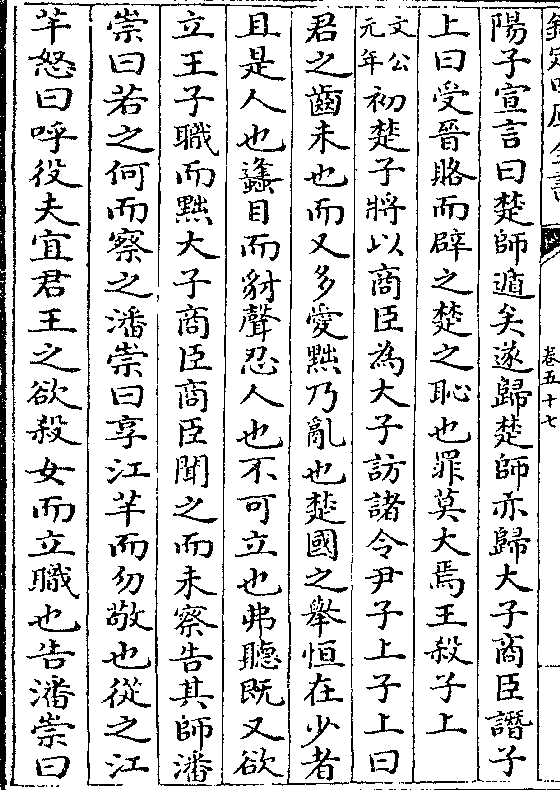 欽定四庫全書
卷五十七
陽子宣言曰楚師遁矣遂歸楚師亦歸大子商臣譖子
上曰受晉賂而辟之楚之恥也罪莫大焉王殺子上
文公元年初楚子將以商臣為大子訪諸令尹子上子上曰
君之齒未也而又多愛黜乃亂也楚國之舉恒在少者
且是人也蠭目而豺聲忍人也不可立也弗聽既又欲
立王子職而黜大子商臣商臣聞之而未察告其師潘
崇曰若之何而察之潘崇曰享江芊而勿敬也從之江
芊怒曰呼役夫宜君王之欲殺女而立職也告潘崇曰